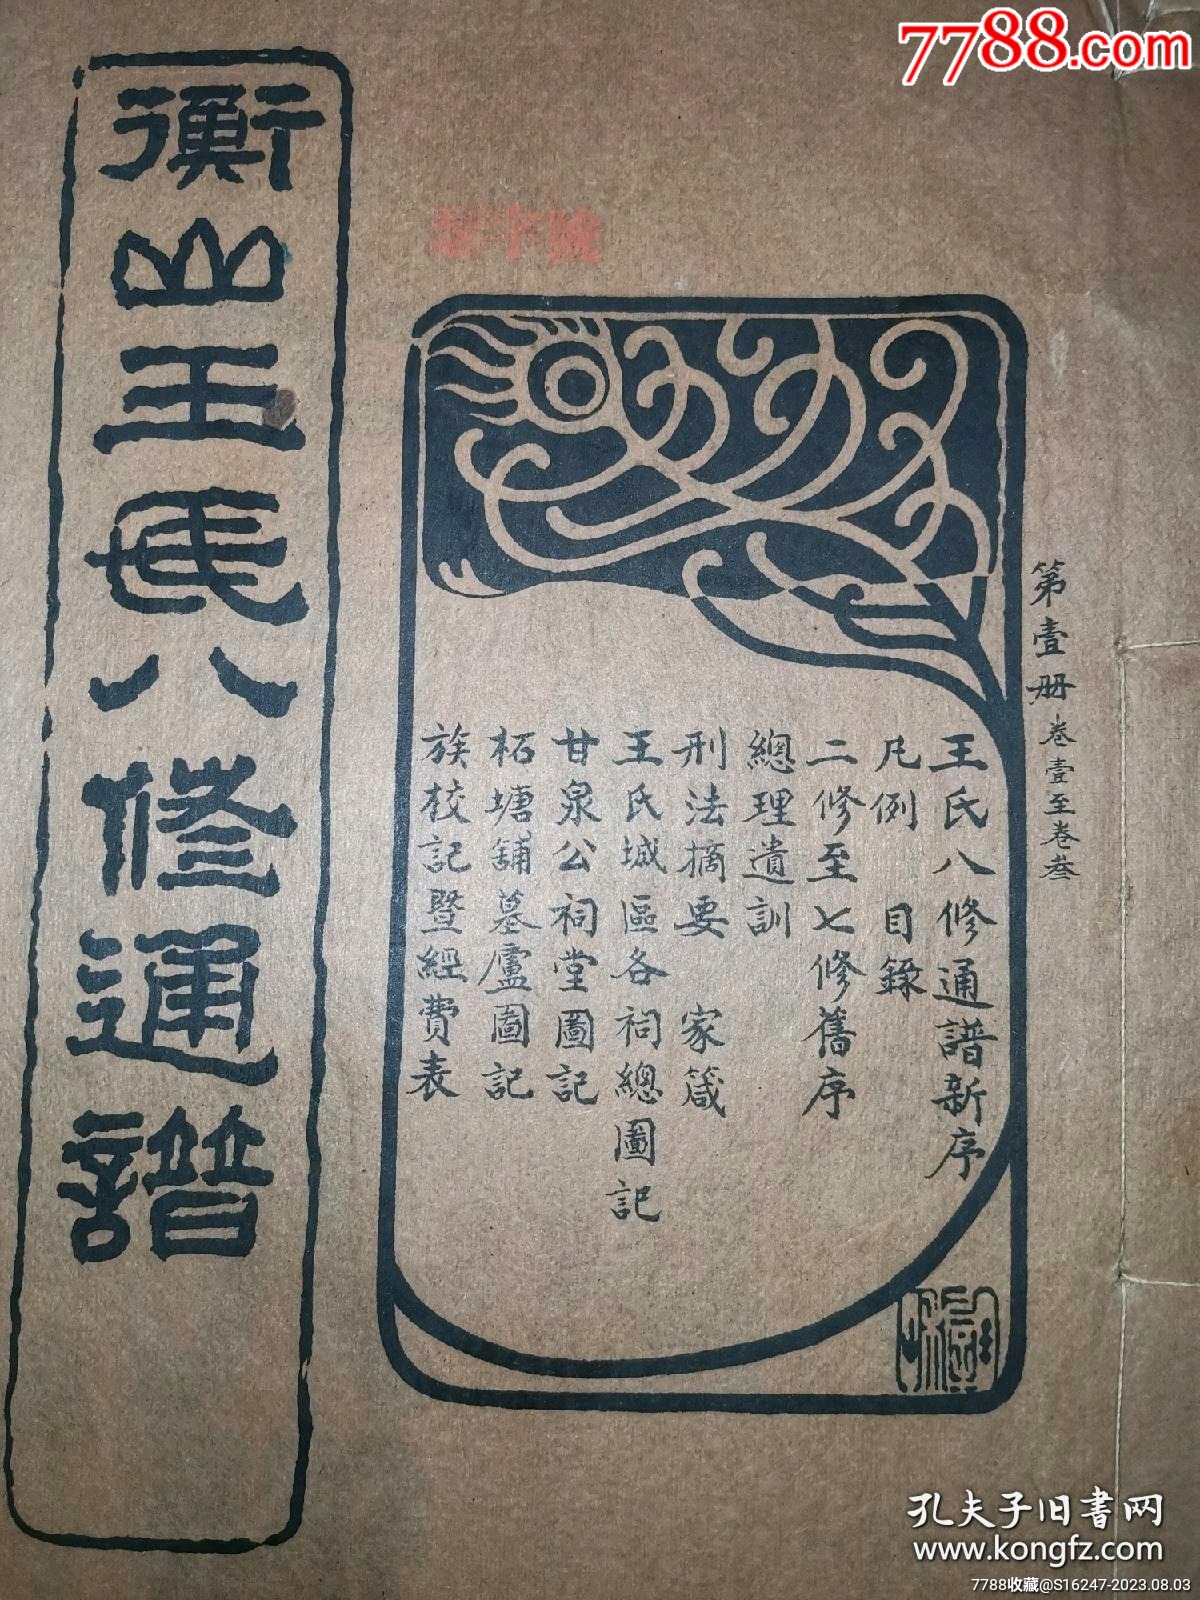 7788.com
第壹册 卷壹至卷叁
王氏八修通譜新序
凡例 目錄
二修至七修舊序
總理遺訓
刑法摘要 家箴
王氏城區各祠總圖記
甘泉公祠堂圖記
柘塘舖墓廬圖記
族校記暨經費表
字號
衡山王氏八修通譜
孔夫子旧书网
www.kongfz.com
7788收藏@S16247-2023.08.03